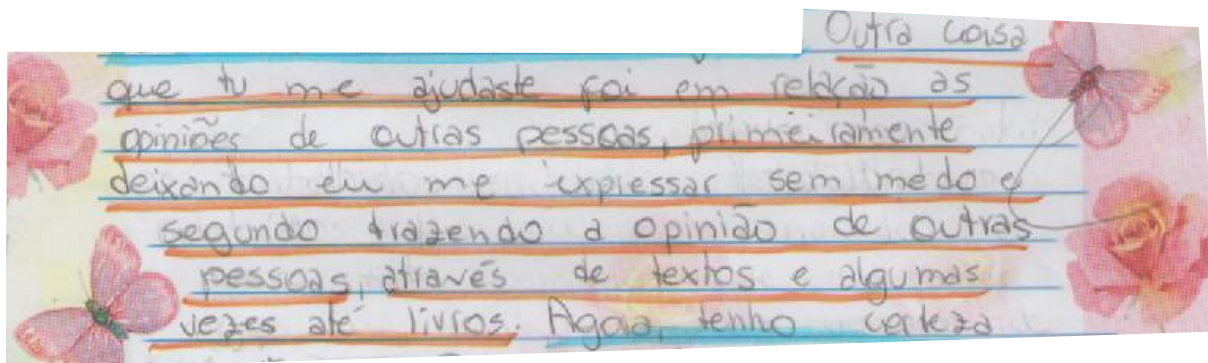 Outra coisa
que tu me ajudaste foi em relação as
opiniões de outras pessoas, primeiramente
deixando eu me expressar sem medo e
segundo trazendo a opinião de outras
pessoas, através de textos e algumas
vezes até livros. Agora, tenho certeza